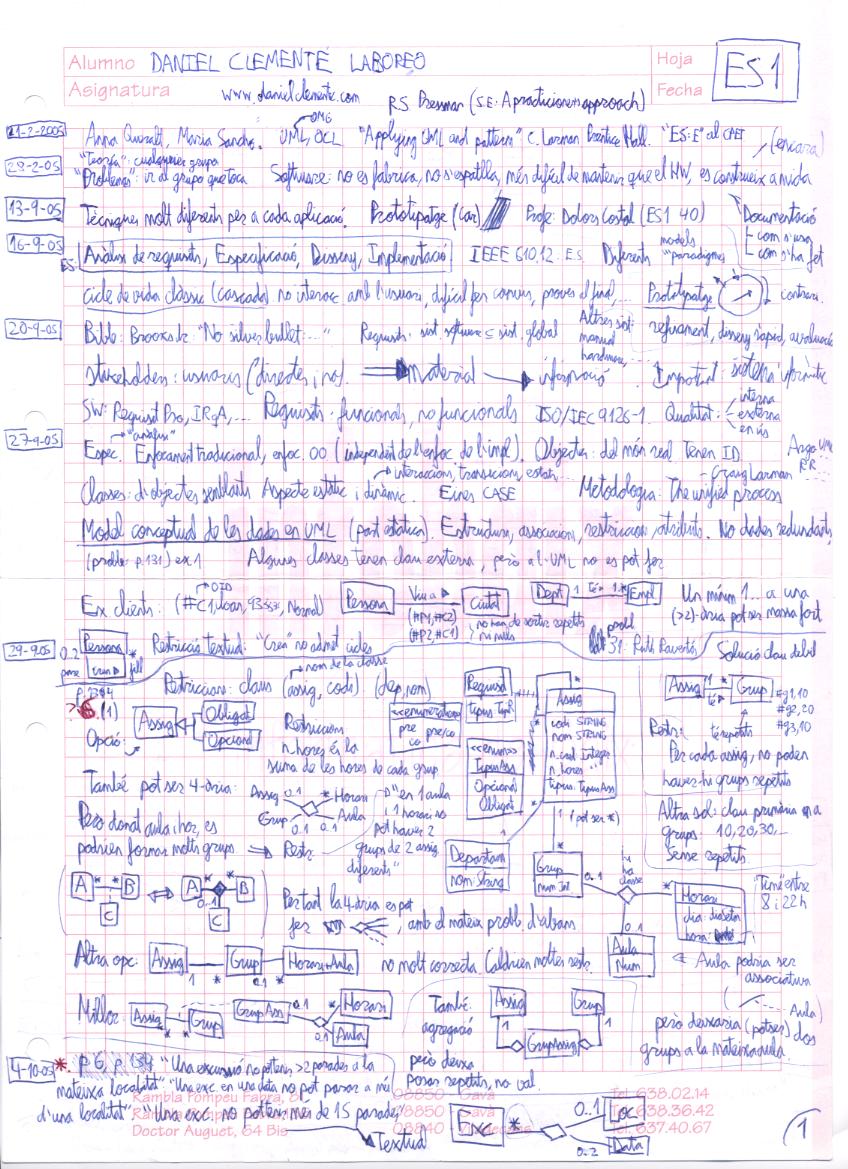 Alumno DANIEL CLEMENTE LABOREO Hoja ES1
Asignatura www.danielclemente.com Fecha
RS Pressman (S.E: A practicioner's approach)
21-2-2005 Anna Queralt, Maria Sancho. UML, OCL "Applying UML and patterns" C. Larman Prentice Hall. "ES:E" al CPET
OMG
(encara)
"Teoría": cualquier grupo
28-2-05 "Problemas": ir al grupo que toca Software: no es fabrica, no s'espatlla, més difícil de mantenir que el HW, es construeix a mida
13-9-05 Tècniques molt diferents per a cada aplicació. Prototipatge (car) Profe: Dolors Costal (ES1 40) Documentació
com s'usa
com s'ha fet
16-9-05 ES: Anàlisi de requisits, Especificació, Disseny, Implementació IEEE 610.12. E.S. Diferents models
"paradigmes
Cicle de vida clàssic (cascada) no interacc amb l'usuari, difícil fer canvis, proves al final,... Prototipatge contrari.
20-9-05 Bible: Brooks Jr. "No silver bullet..." Requisits. sist. software ⊆ sist. global Altres sist: manual hardware, refinament, disseny ràpid, avaluació
Stakeholders: usuaris (directes i no). material informació Important: sistema informàtic
SW: Requisit Pro, IRqA,... Requisits: funcionals, no funcionals ISO/IEC 9126-1. Qualitat: interna
externa
en ús
27-9-05 "anàlisi"
Espec. Enfocament tradicional, enfoc. OO (independent de l'enfoc de l'impl). Objectes: del món real Tenen ID Argo UML
RR
interaccions, transicions, estats... Craig Larman
Classes: d'objectes semblants Aspecte estàtic i dinàmic. Eines CASE Metodologia: The unified process
Model conceptual de les dades en UML (part estàtica). Estructura, associacions, restriccions, atributs. No dades redundants
(probl p. 131) ex 1 Algunes classes tenen clau externa, però al UML no es pot fer
OID
Ex clients: (#C1, Joan, 93..., Normal) Persona Viu a Ciutat Dept 1 té 1..* Empl Un mínim 1... a una
(#P1, #C2) no han de sortir repetits (>2)-ària pot ser massa fort
(#P2, #C1) ni nulls
29-9-05 Persona 0..2 * fill Restricció textual: "Crea" no admet cicles probl 31: Ruth Raventós Solució clau dèbil
nom de la classe
Restriccions: claus (assig, codi) (dep, nom) Requisit
tipus: TipR
Assig
codi STRING
nom STRING
n. cred Integer
n. hores " "
tipus: TipusAss
Assig 1 té * Grup
#g1,10
#g2,20
#g3,10
(1) Assig Obligat
Opcional
Opció:
<<enumeration>>
pre pre/co
co
<<enum>>
TipusAss
Opcional
Obligat
Restriccions
n. hores és la
suma de les hores de cada grup
Restr: té repetits
Per cada assig, no poden
haver-hi grups repetits
També pot ser 4-ària: Assig 0..1 * Horari
Grup 0..1 0..1 Aula
"en 1 aula
i 1 horari no
pot haver 2
grups de 2 assig
diferents"
Però donat aula i hor, es
podrien formar molts grups ⇒ Restr:
1 (pot ser *)
Altra sol: clau primària en a
grups: 10, 20, 30...
Sense repetits
Departam
nom: String
Grup
num: Int
0..1
hi ha classe
* Horari
dia: diaSetm
hora:
"Time" entre
8 i 22h
A * * B ⇔ A * * B
C 0..1 C
Per tant la 4-ària es pot
fer , amb el mateix probl. d'abans
0..1
Aula
Num
Altra opc: Assig 1 * Grup 0..1 * Horari+Aula no molt correcta. Caldrien moltes restr.
Aula podria ser
associativa
Millor: Assig * * Grup GrupAss 0..1 * Horari
0..1 Aula
També
agregació
però deixa
posar repetits, no val.
Assig Grup
1 1
GrupAssig
Aula)
però deixaria (potser) dos
grups a la mateixa aula.
4-10-05 * p 6, p 134 "Una excursió no pot tenir >2 parades a la
mateixa localitat" "Una exc. en una data no pot passar a més
d'una localitat" "Una exc. no pot tenir més de 15 parades"
Textual
Exc * 0..1 Loc
0..2 Data
Rambla Pompeu Fabra, 8 08850 - Gavà Tel. 638.02.14
08850 - Gavà Tel. 638.36.42
Doctor Auguet, 64 Bis 08840 - Tel. 637.40.67
1